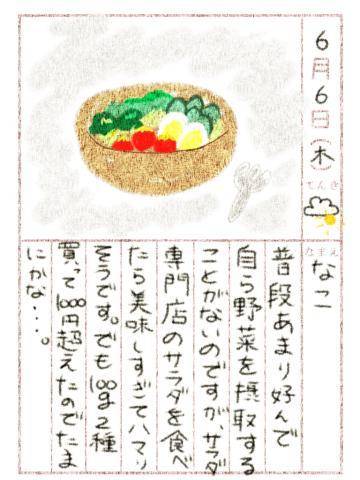 6月6日(木)
てんき
なまえ
なこ
普段あまり好んで
自ら野菜を摂取する
ことがないのですが、サラダ
専門店のサラダを食べ
たら美味しすぎてハマり
そうです。でも100g2種
買って1000円超えたのでたま
にかな・・・。